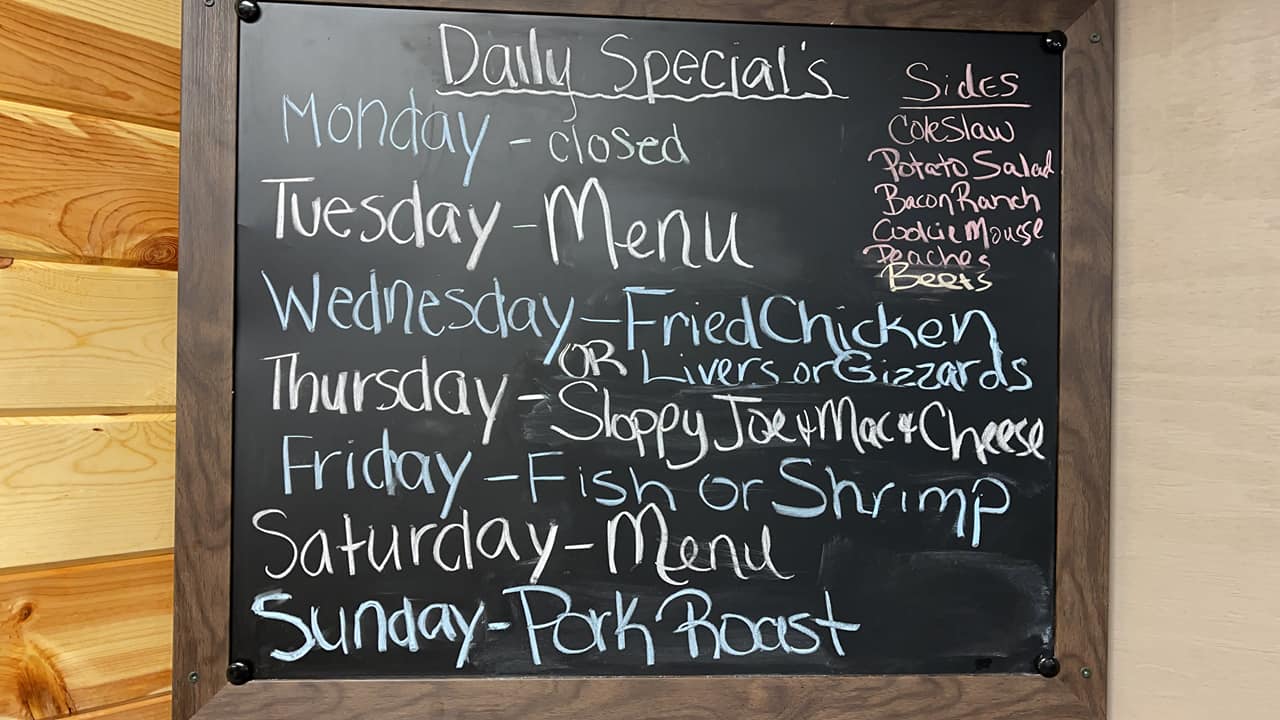 Daily Special's
Monday - closed
Tuesday - Menu
Wednesday - Fried Chicken
OR Livers or Gizzards
Thursday - Sloppy Joe & Mac & Cheese
Friday - Fish or Shrimp
Saturday - Menu
Sunday - Pork Roast
Sides
Coleslaw
Potato Salad
Bacon Ranch
Cookie Mousse
Peaches
Beets